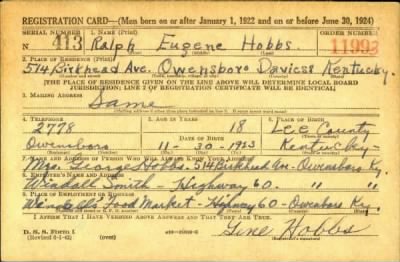 REGISTRATION CARD—(Men born on or after January 1, 1922 and on or before June 30, 1924)
SERIAL NUMBER 1. NAME (Print) ORDER NUMBER
N 413 Ralph Eugene Hobbs 11993
2. PLACE OF RESIDENCE (Print)
514 Birkhead Ave. Owensboro Daviess Kentucky.
[THE PLACE OF RESIDENCE GIVEN ON THE LINE ABOVE WILL DETERMINE LOCAL BOARD
JURISDICTION; LINE 2 OF REGISTRATION CERTIFICATE WILL BE IDENTICAL]
3. MAILING ADDRESS
Same
4. TELEPHONE 5. AGE IN YEARS 6. PLACE OF BIRTH
2778 18 Lee County
DATE OF BIRTH
Owensboro 11-30-1923 Kentucky-
7. NAME AND ADDRESS OF PERSON WHO WILL ALWAYS KNOW YOUR ADDRESS
Mrs. George Hobbs. 514 Birkhead Ave-Owensboro Ky.
8. EMPLOYER'S NAME AND ADDRESS
Windall Smith - Highway 60 - " "
9. PLACE OF EMPLOYMENT OR BUSINESS
Windell's Food Market - Highway 60 - Owensboro Ky.
I AFFIRM THAT I HAVE VERIFIED ABOVE ANSWERS AND THAT THEY ARE TRUE.
D. S. S. Form 1
(Revised 6-1-42)
Gene Hobbs